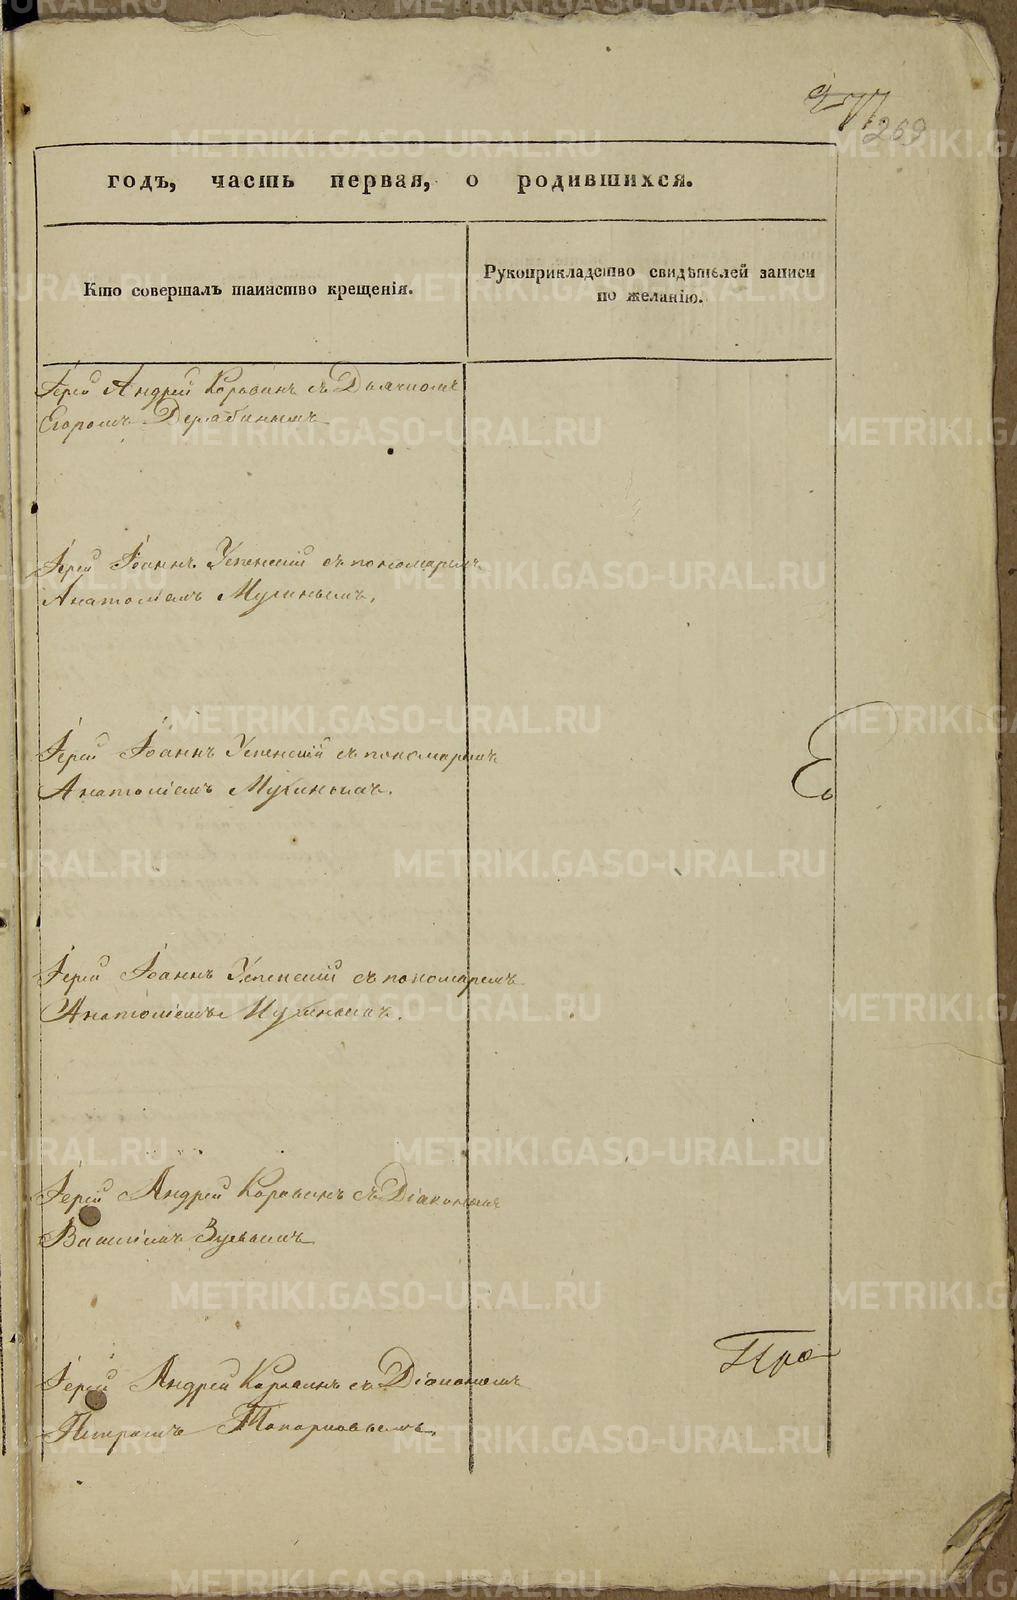 277
269
годъ, часть первая, о родившихся.
Кто совершалъ таинство крещенія.
Рукоприкладство свидѣтелей записи
по желанію.
Іерей Андрей Коровинъ съ Дьячкомъ
Егоромъ Дерябинымъ
Іерей Іоаннъ Успенскій съ пономаремъ
Анатоліемъ Мухинымъ.
Іерей Іоаннъ Успенскій съ пономаремъ
Анатоліемъ Мухинымъ.
Ео
Іерей Іоаннъ Успенскій съ пономаремъ
Анатоліемъ Мухинымъ.
Іерей Андрей Коровинъ съ Діакономъ
Василіемъ Зуевымъ
Іерей Андрей Коровинъ съ Діакономъ
Петромъ Топорковымъ.
Про
METRIKI.GASO-URAL.RU